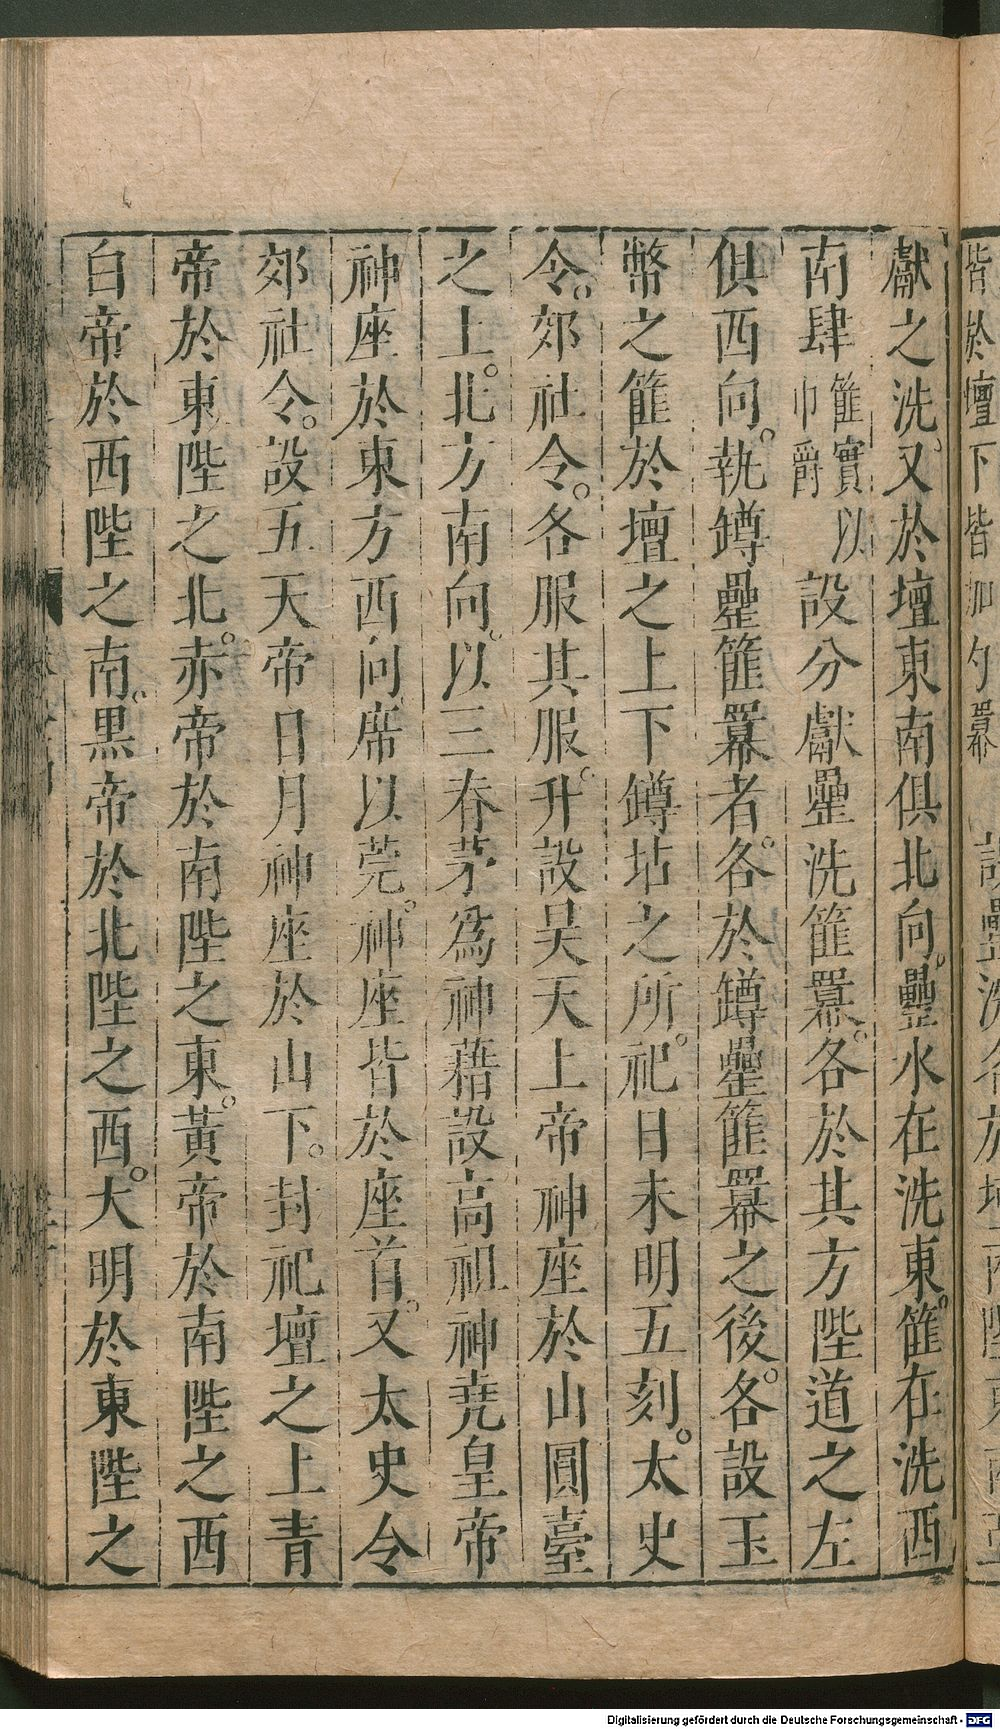 獻之洗又於壇東南俱北向罍水在洗東篚在洗西
南肆篚實以巾爵設分獻罍洗篚羃各於其方陛道之左
俱西向執罇罍篚羃者各於罇罍篚羃之後各設玉
幣之篚於壇之上下罇坫之所祀日未明五刻太史
令郊社令各服其服升設昊天上帝神座於山圓臺
之上北方南向以三春茅爲神藉設高祖神堯皇帝
神座於東方西向席以莞神座皆於座首又太史令
郊社令設五天帝日月神座於山下封祀壇之上青
帝於東陛之北赤帝於南陛之東黃帝於南陛之西
白帝於西陛之南黑帝於北陛之西大明於東陛之
皆於壇下皆加勺羃設罍洗各於壇南陛東南
Digitalisierung gefördert durch die Deutsche Forschungsgemeinschaft - DFG